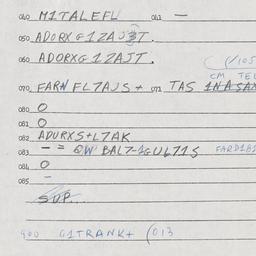 040 M1TALEFL 041 —
050 ADORXG1ZAJ3T.
060 ADORXG1ZAJT. (/105
CM TEL
070 FARN FL7AJS + 071 TAS 1NASAX
080 O
081 O
082 ADURXS+L7AK
083 - = QW BAL7-1GUL71S FARD1B1
084 O
085 -
S.U.P.
900 G1TRANK+ (013